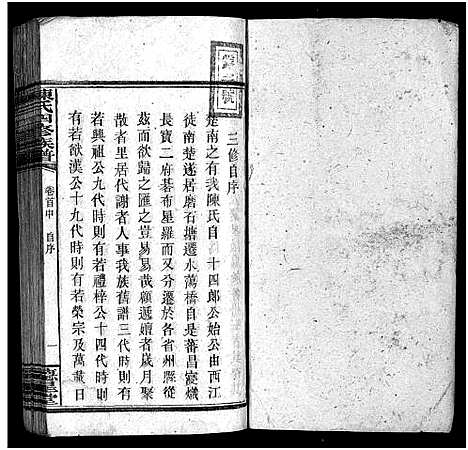 三修自序
楚南之有我陳氏自 十四郎公始公由西江
徒南楚遂居磨石塘遷水蕩橋自是蕃昌寖熾
長寶二府碁布星羅而又分遷於各省州縣從
茲而欲歸之匯之豈易易哉顧遞嬗者歲月聚
散者里居代謝者人事我族舊譜三代時則有
若興祖公九代時則有若禮梓公十四代時則
有若歆漢公十九代時則有若榮宗及萬載日
陳氏四修族譜
卷首中
自序
一